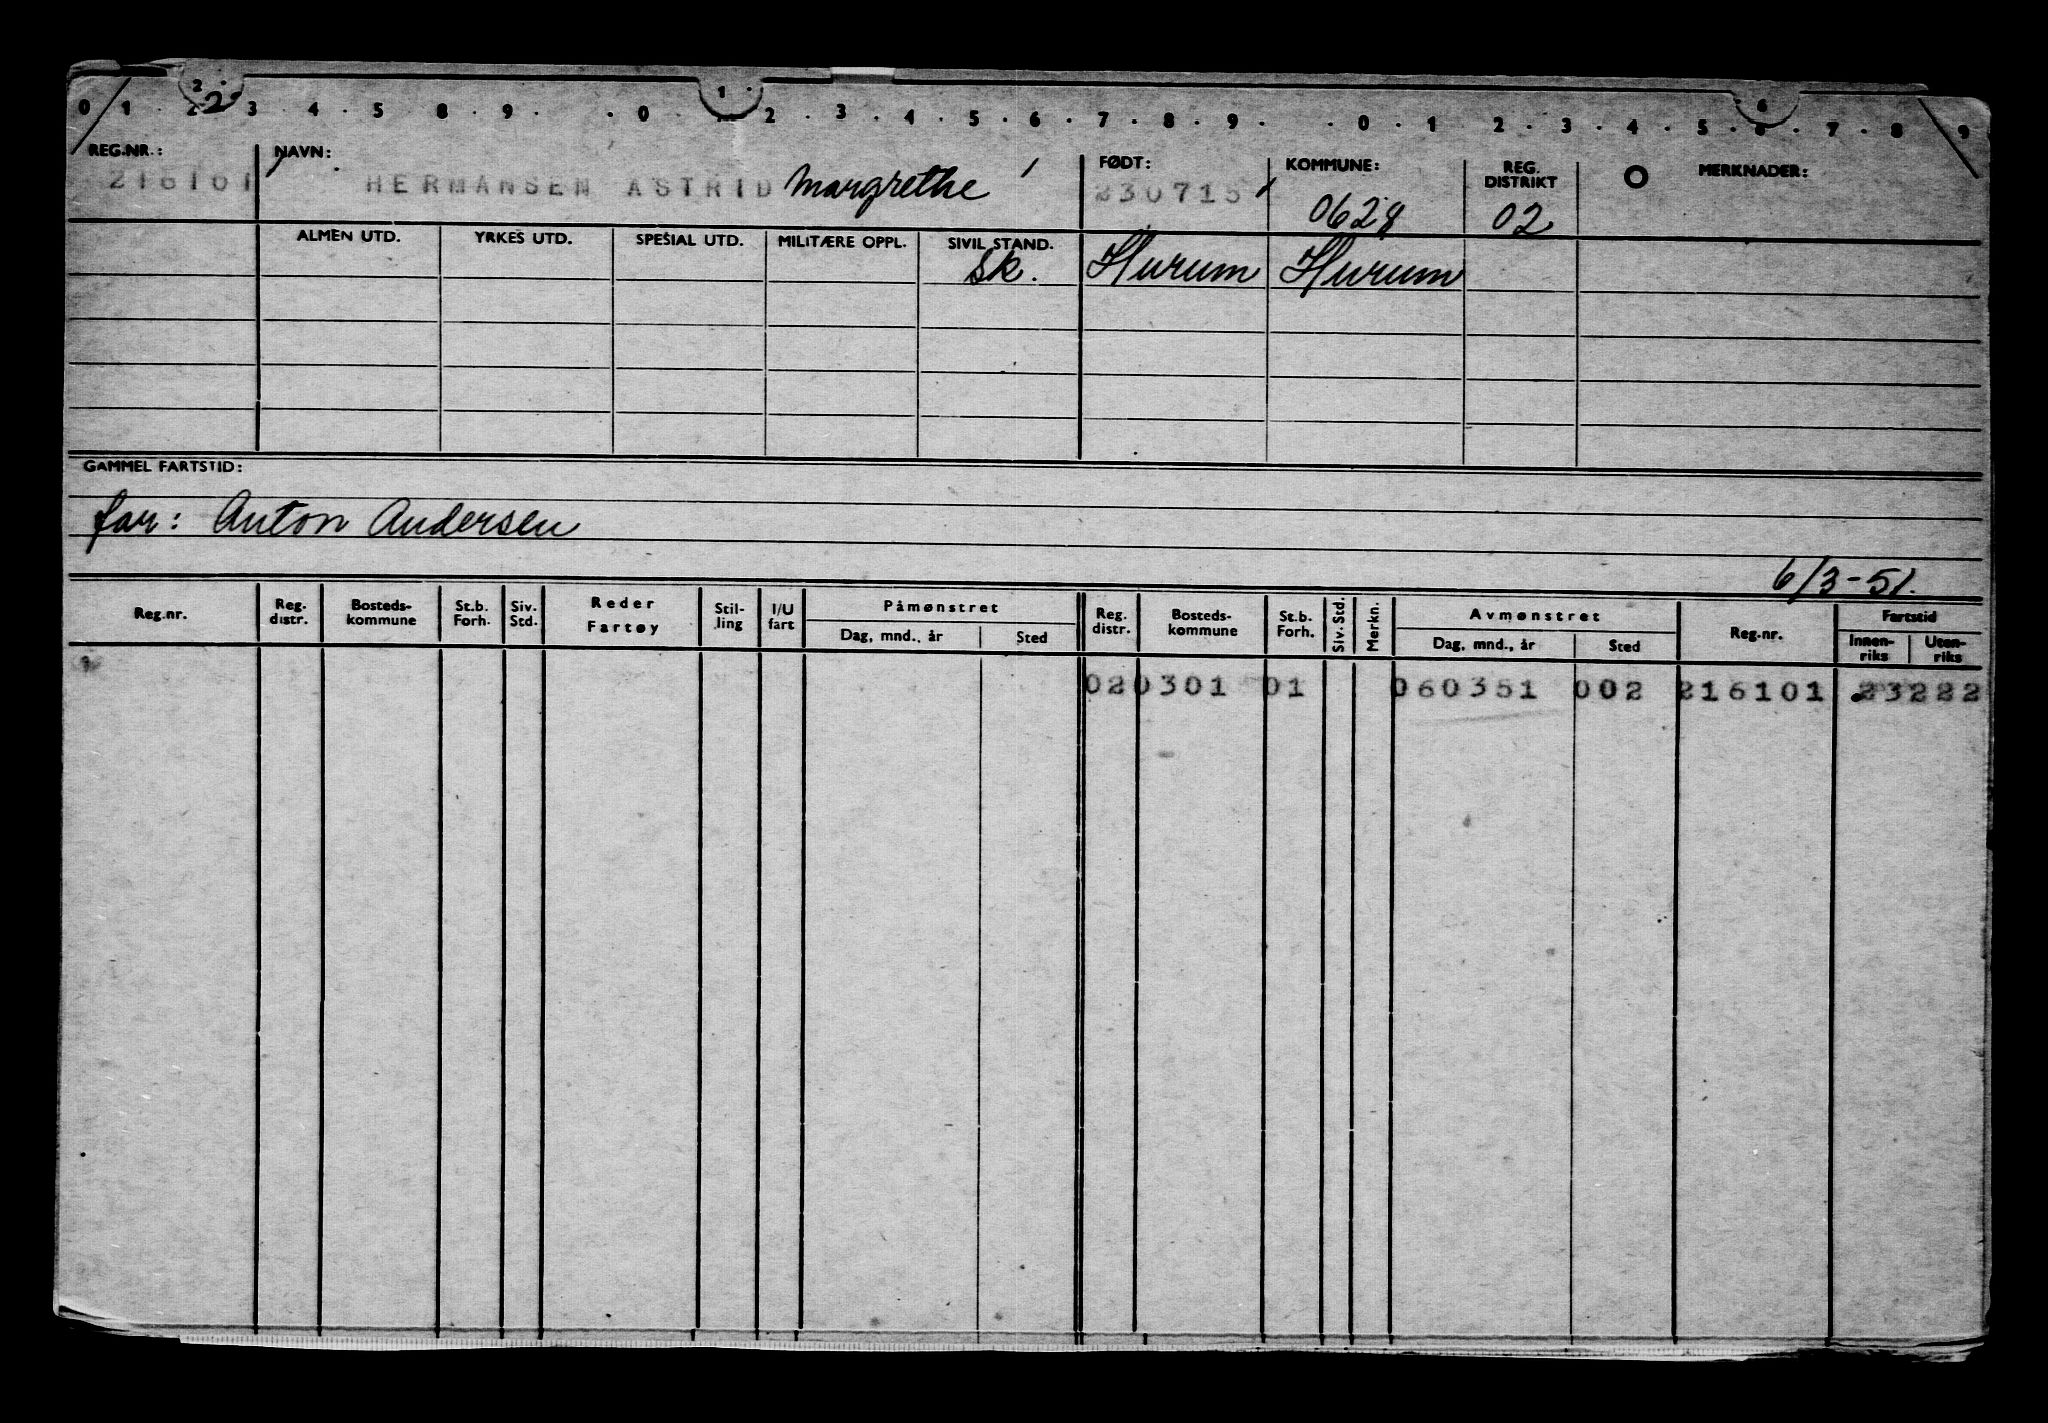 0 1 2 3 4 5 8 9 . 0 1 2 . 3 . 4 . 5 . 6 . 7 . 8 . 9 . . 0 . 1 . 2 . 3 . 4 . 5 . 6 . 7 . 8 . 9
2 2 1 6
REG.NR.: NAVN: FØDT: KOMMUNE: REG. DISTRIKT MERKNADER:
216101 HERMANSEN ASTRID Margrethe 230715 0628 02
ALMEN UTD. YRKES UTD. SPESIAL UTD. MILITÆRE OPPL. SIVIL STAND.
Sk. Hurum Hurum
GAMMEL FARTSTID:
far: Anton Andersen
6/3-51.
Reg.nr. Reg. distr. Bosteds-kommune St.b. Forh. Siv. Std. Reder Fartøy Stil-ling I/U fart Påmønstret Reg. distr. Bosteds-kommune St.b. Forh. Siv. Std. Merkn. Avmønstret Reg.nr. Fartstid
Dag, mnd., år Sted Dag, mnd., år Sted Innen-riks Uten-riks
02 0301 01 060351 002 216101 23222